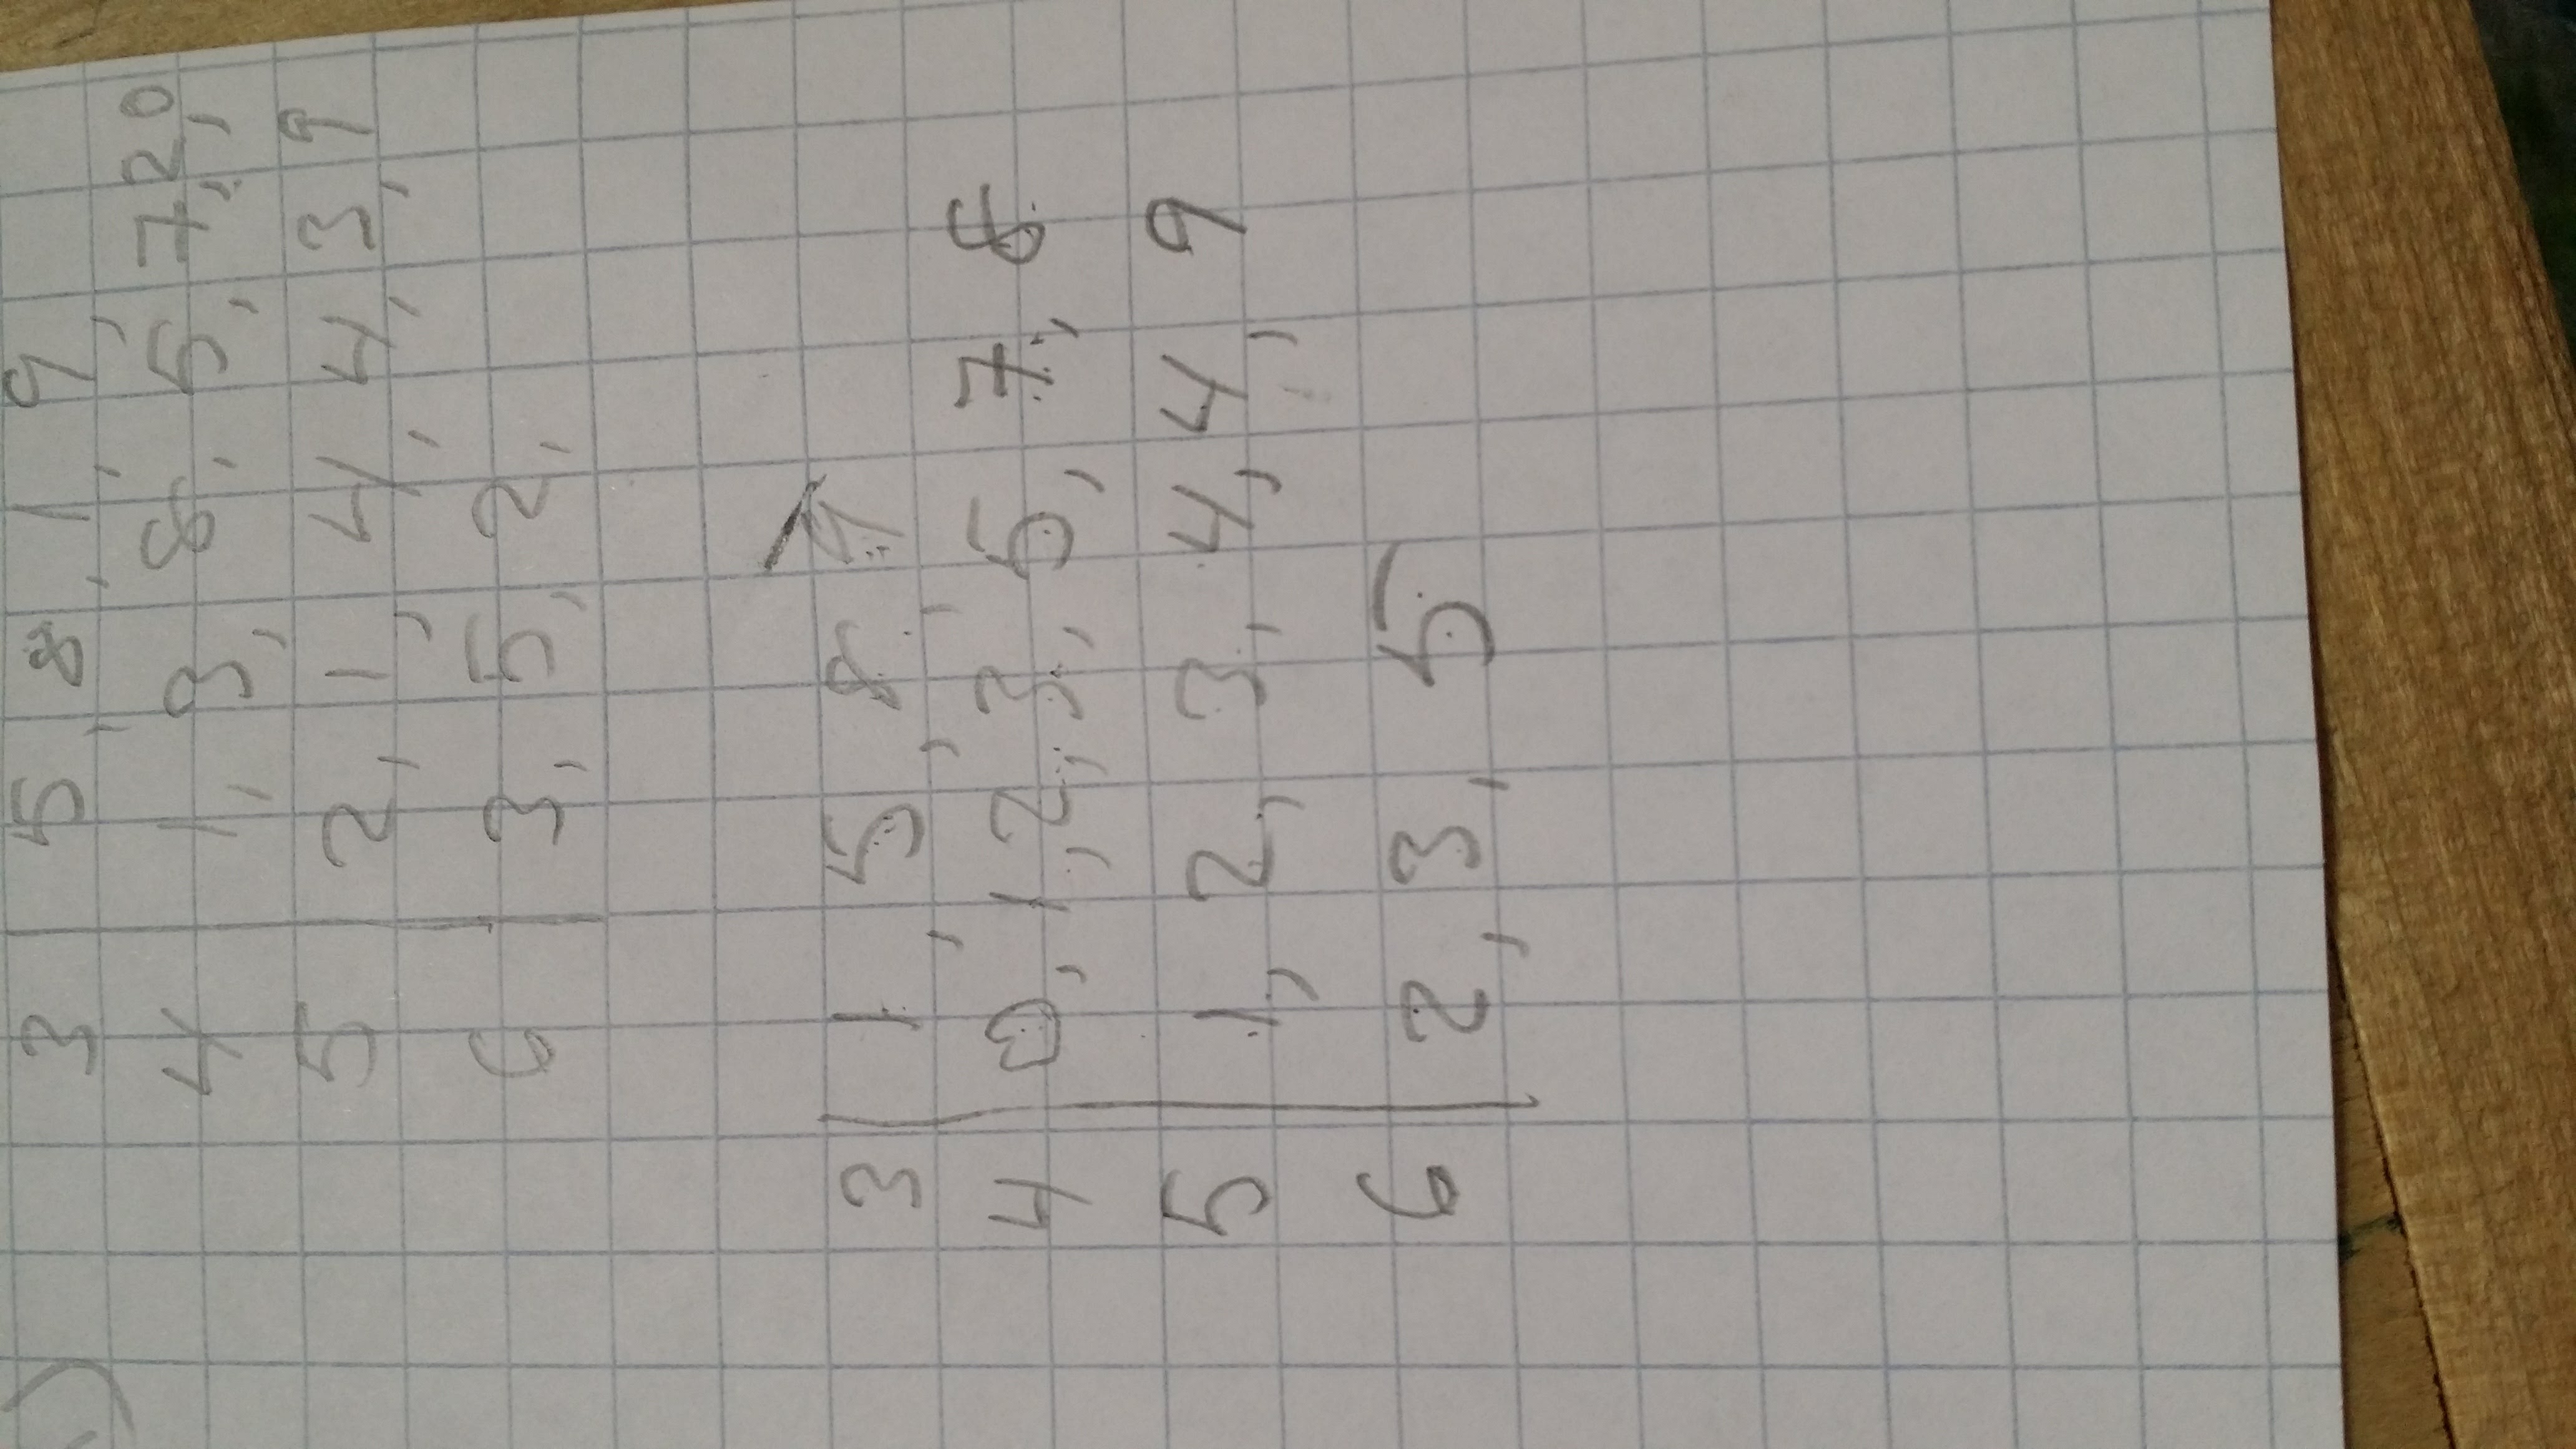 3 | 5, 8, 1, 9,
4 | 1, 3, 8, 5, 7, 2, 0
5 | 2, 1, 4, 4, 3, 9
6 | 3, 5, 2,
3 | 1, 5, 8, 9
4 | 0, 1, 2, 3, 5, 7, 8
5 | 1, 2, 3, 4, 4, 9
6 | 2, 3, 5